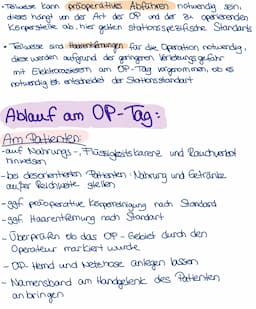 • Teilweise kann präoperatives Abführen notwendig sein,
dies hängt von der Art der OP und der zu operierenden
Körperstelle ab, hier gelten stationsspezifische Standards
• Teilweise sind Haarentfernungen für die Operation notwendig,
diese werden aufgrund der geringeren Verletzungsgefahr
mit Elektrorasierern am OP-Tag vorgenommen, ob es
notwendig ist entscheidet der Stationsstandart
Ablauf am OP-Tag:
Am Patienten:
- auf Nahrungs-, Flüssigkeitskarenz und Rauchverbot
hinweisen
- bei desorientierten Patienten: Nahrung und Getränke
außer Reichweite stellen
- ggf. präoperative Körperreinigung nach Standard
- ggf. Haarentfernung nach Standart
- Überprüfen ob das OP-Gebiet durch den
Operateur markiert wurde
- OP-Hemd und Netzhose anlegen lassen
- Namensband am Handgelenk des Patienten
anbringen